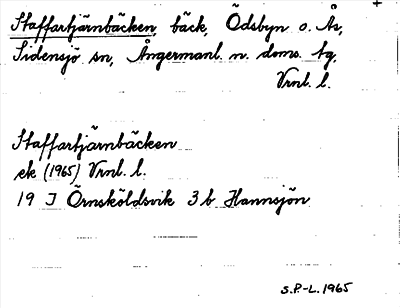 Staffartjärnbäcken, bäck, Ödsbyn o. Ås,
Sidensjö sn, Ångermanl. n. doms. tg,
Vrnl. l.
Staffartjärnbäcken
ek (1965) Vrnl. l.
19 J Örnsköldsvik 3 b Hannsjön
S.P.-L. 1965